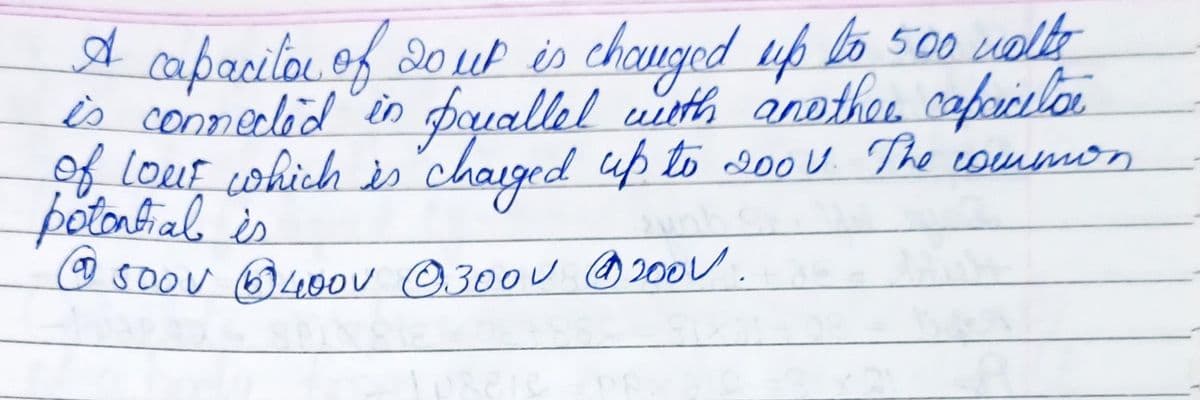 A capacitor of 20 uF is charged up to 500 volts
is connected in parallel with another capacitor
of 10uF which is charged up to 200 V. The common
potential is
ⓐ 500V ⓑ 400V ⓒ 300V ⓓ 200V.